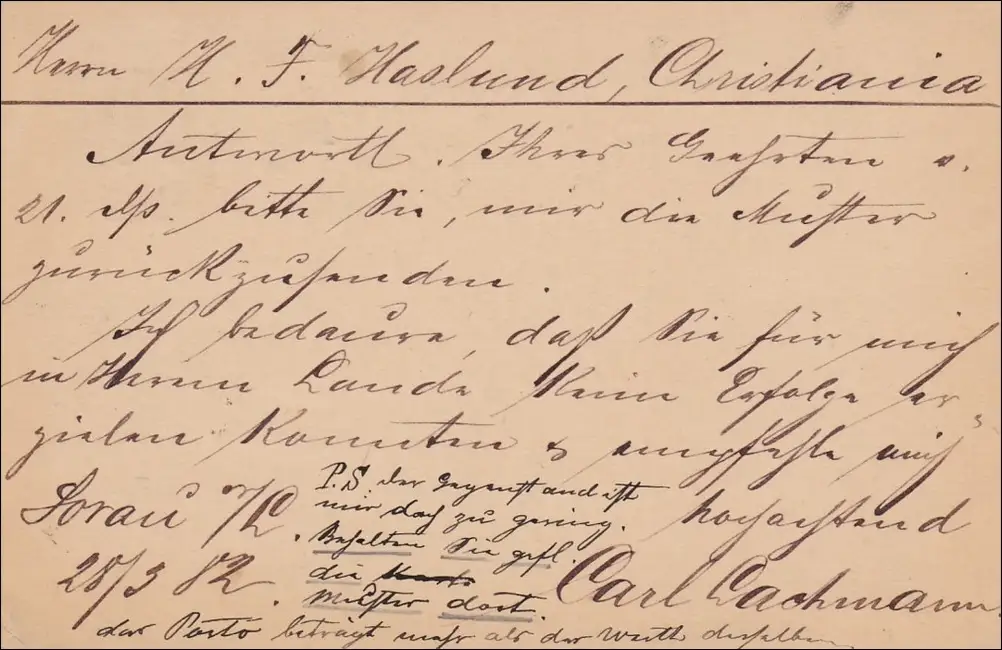 Herrn H. F. Haslund, Christiania
Antwortl. Ihres Geehrten v.
21. ds. bitte Sie, mir die Muster
zurückzusenden.
Ich bedaure, daß Sie für mich
in Ihrem Lande Keine Erfolge er-
zielen Konnten & empfehle mich
hochachtend
Sorau N/L
28/3 82.
Carl Lachmann
P.S der Gegenstand ist
mir doch zu gering.
Behalten Sie gefl.
die
Muster dort.
das Porto beträgt mehr als der Werth derselben